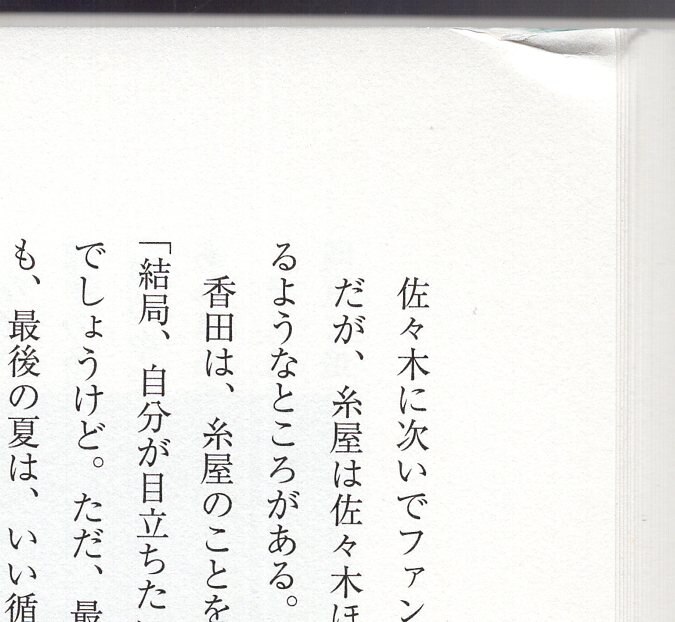 佐々木に次いでファン
だが、糸屋は佐々木ほ
るようなところがある。
香田は、糸屋のことを
「結局、自分が目立ちた
でしょうけど。ただ、最
も、最後の夏は、いい循